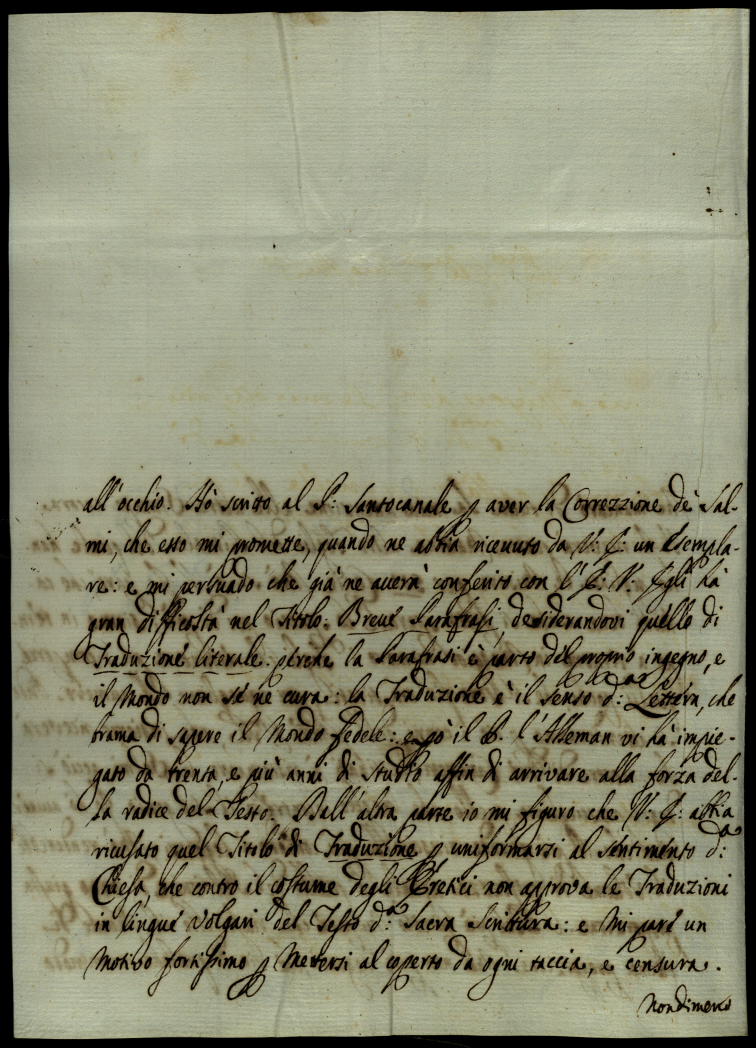 all'occhio. Hò scritto al P: Santocanale p aver la Correzzione de' Sal-
mi, che esso mi promette, quando ne abbia ricevuto da V: P: un Esempla-
re: e mi persuado che già ne averà conferito con l'E: V: Egli hà
gran difficoltà nel Titolo: Breve Parafrasi, desiderandovi quello di
Traduzione literale. perche la Parafrasi è parto del proprio ingegno, e
il Mondo non se ne cura: la Traduzione è il senso d:a Lettera, che
brama di sapere il Mondo fedele: e pò il P. l'Alleman vi hà impie-
gato da trenta, e più anni di studio affin di arrivare alla forza del-
la radice del Testo. Dall'altra parte io mi figuro che V: P: abbia
ricusato quel Titolo di Traduzione p uniformarsi al sentimento d:a
Chiesa, che contro il costume degli Eretici non approva le Traduzioni
in lingue volgari del Testo d:a Sacra Scrittura: e mi pare un
motivo fortissimo p mettersi al coperto da ogni taccia, e censura.
Nondimeno